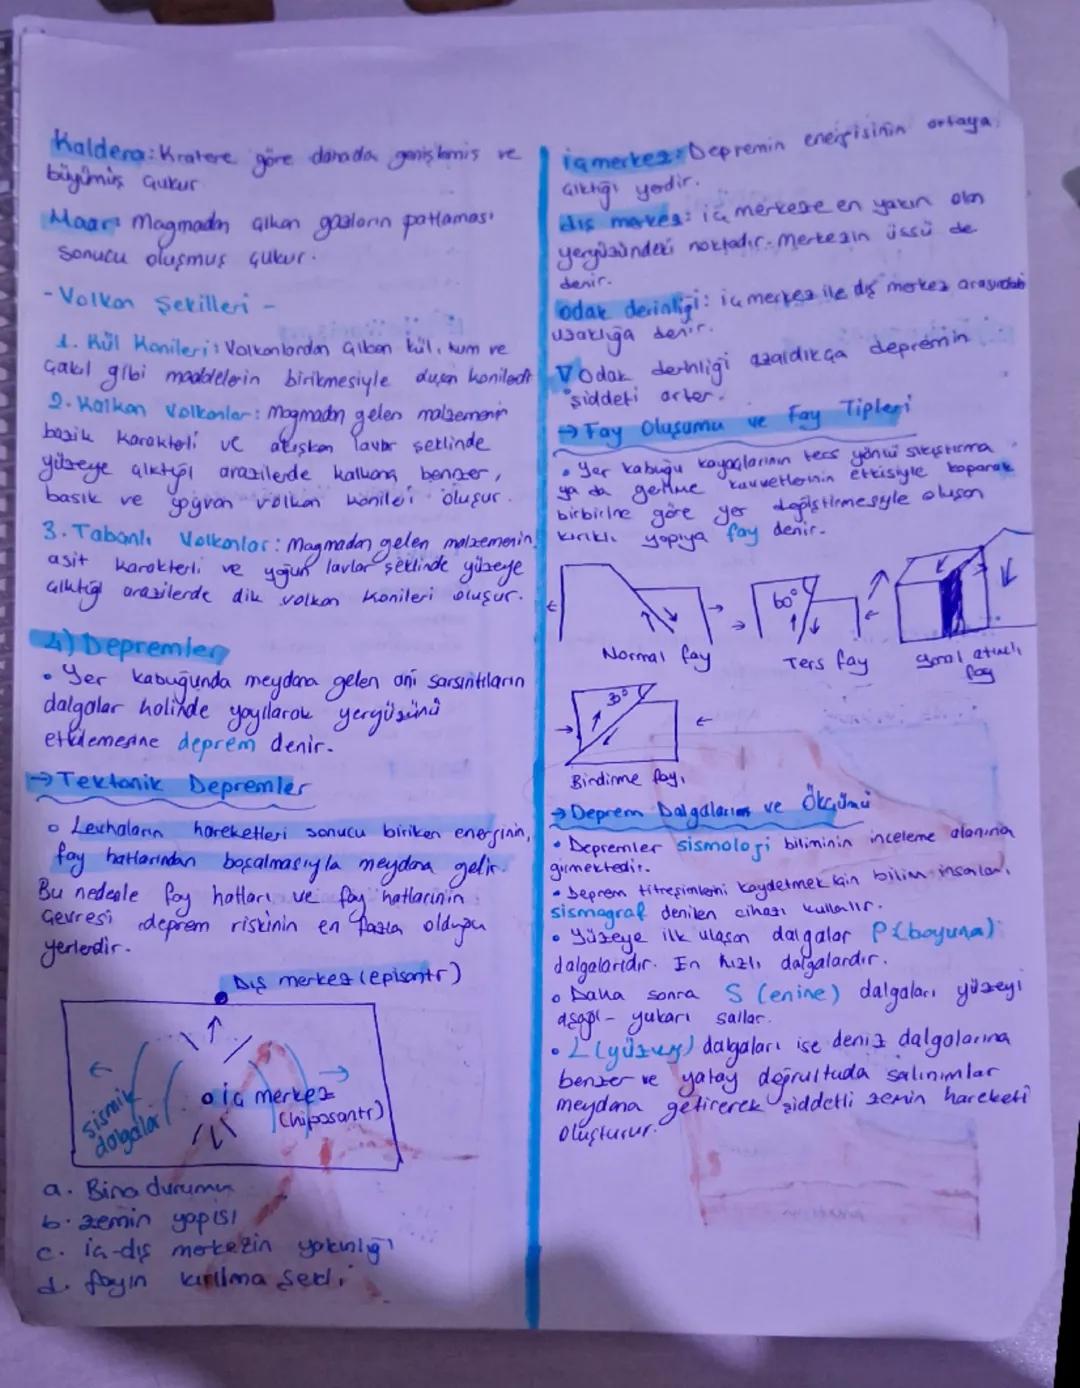 Kaldera: Kratere göre daha da genişlemiş ve
büyümüş çukur
Maar: Magmadan çıkan gazların patlaması
sonucu oluşmuş çukur.
- Volkan Şekilleri -
1. Kül Konileri: Volkanlardan çıkan kül, kum ve
çakıl gibi maddelerin birikmesiyle
2. Kalkan Volkanlar: Magmadan gelen malzemenin
bazik karakterli ve akışkan lavlar şeklinde
yüzeye çıktığı arazilerde kalkana benzer,
basık ve yayvan volkan konileri oluşur.
3. Tabanlı Volkanlar: Magmadan gelen malzemenin
asit karakterli ve yoğun lavlar şeklinde yüzeye
çıktığı arazilerde dik volkan konileri oluşur.
4) Depremler
• Yer kabuğunda meydana gelen ani sarsıntıların
dalgalar halinde yayılarak yeryüzünü
etkilemesine deprem denir.
→ Tektonik Depremler
• Levhaların hareketleri sonucu biriken enerjinin,
fay hatlarından boşalmasıyla meydana gelir.
Bu nedenle fay hatları ve fay hatlarının
çevresi deprem riskinin en fazla olduğu
yerlerdir.
Dış merkez (episantr)
İç merkez
(hiposantr)
sismik
dalgalar
a. Bina durumu
b. zemin yapısı
c. iç-dış merkezin yakınlığı
d. fayın kırılma şekli
iç merkez: Depremin enerjisinin ortaya
çıktığı yerdir.
dış merkez: iç merkeze en yakın olan
yeryüzündeki noktadır. Merkezin üssü de
denir.
odak derinliği: iç merkez ile dış merkez arasındaki
uzaklığa denir.
Odak derinliği azaldıkça depremin
şiddeti artar.
→ Fay Oluşumu ve Fay Tipleri
• Yer kabuğu kayaçlarının ters yönlü sıkıştırma
ya da gerilme kuvvetlerinin etkisiyle koparak
birbirine göre yer değiştirmesiyle oluşan
kırıklı yapıya fay denir.
60°
Normal fay
Ters fay
atımlı
fay
30°
Bindirme fayı
→ Deprem Dalgaları ve Ölçümü
• Depremler sismoloji biliminin inceleme alanına
girmektedir.
• Deprem titreşimlerini kaydetmek için bilim insanları,
sismograf denilen cihazı kullanır.
• Yüzeye ilk ulaşan dalgalar P (boyuna)
dalgalarıdır. En hızlı dalgalardır.
• Daha sonra S (enine) dalgaları yüzeyi
aşağı - yukarı sallar.
• L (yüzey) dalgaları ise deniz dalgalarına
benzer ve yatay doğrultuda salınımlar
meydana getirerek şiddetli zemin hareketi
oluşturur.